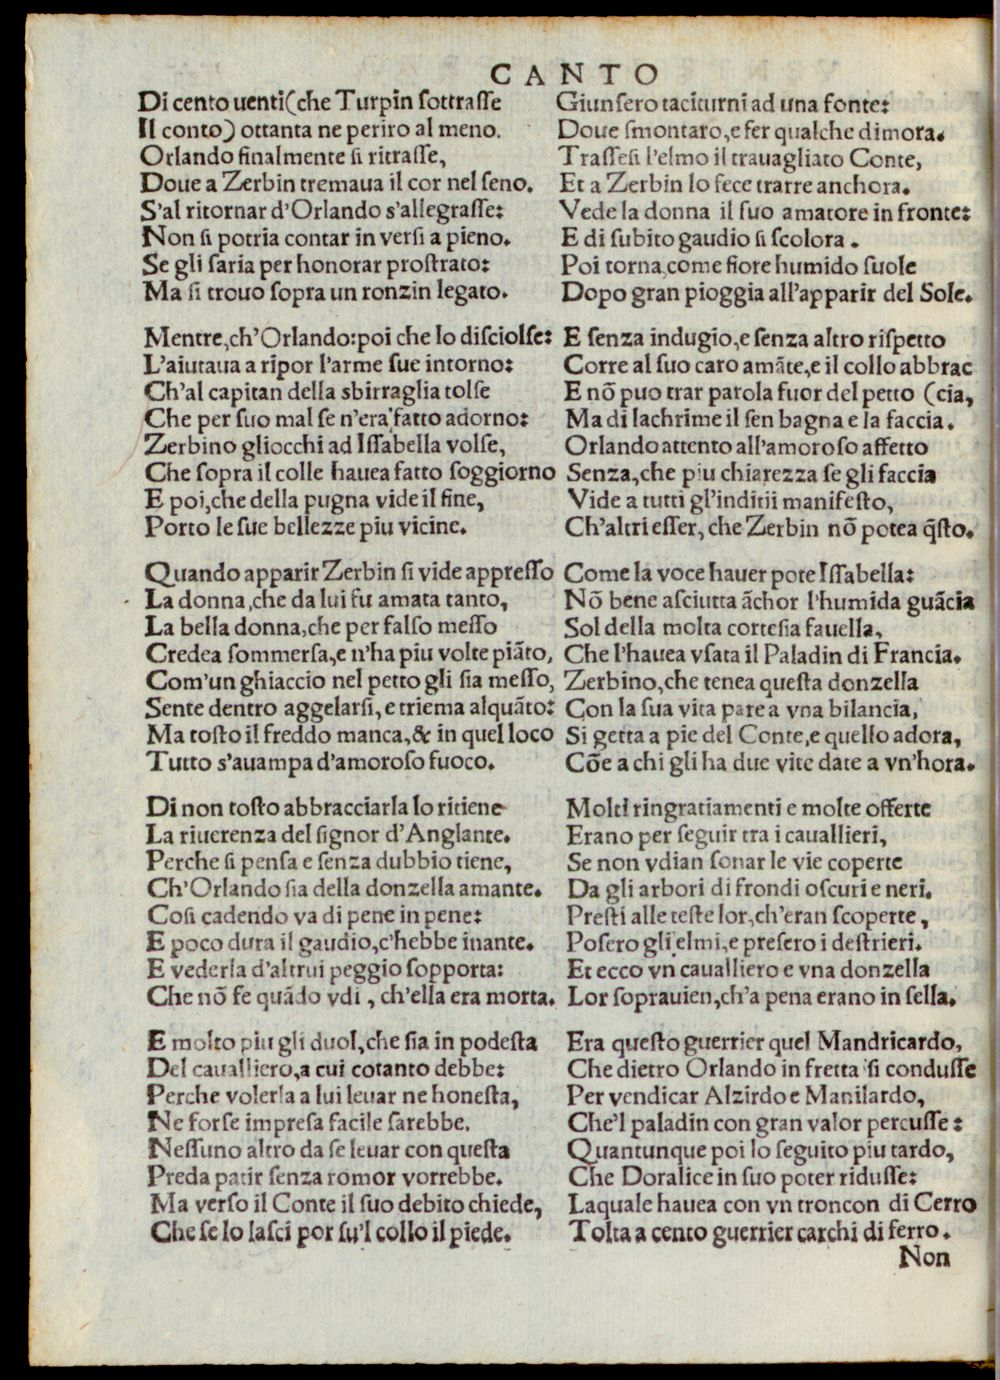 CANTO
Di cento uenti (che Turpin sottrasse
Il conto) ottanta ne periro al meno.
Orlando finalmente si ritrasse,
Doue a Zerbin tremaua il cor nel seno.
S'al ritornar d'Orlando s'allegrasse:
Non si potria contar in versi a pieno.
Se gli saria per honorar prostrato:
Ma si trouo sopra un ronzin legato.
Mentre, ch'Orlando: poi che lo disciolse:
L'aiutaua a ripor l'arme sue intorno:
Ch'al capitan della sbirraglia tolse
Che per suo mal se n'era fatto adorno:
Zerbino gliocchi ad Issabella volse,
Che sopra il colle hauea fatto soggiorno
E poi, che della pugna vide il fine,
Porto le sue bellezze piu vicine.
Quando apparir Zerbin si vide appresso
La donna, che da lui fu amata tanto,
La bella donna, che per falso messo
Credea sommersa, e n'ha piu volte piãto,
Com'un ghiaccio nel petto gli sia messo,
Sente dentro aggelarsi, e triema alquãto:
Ma tosto il freddo manca, & in quel loco
Tutto s'auampa d'amoroso fuoco.
Di non tosto abbracciarla lo ritiene
La riuerenza del signor d'Anglante.
Perche si pensa e senza dubbio tiene,
Ch'Orlando sia della donzella amante.
Cosi cadendo va di pene in pene:
E poco dura il gaudio, c'hebbe inante.
E vederla d'altrui peggio sopporta:
Che nõ fe quãdo vdi, ch'ella era morta.
E molto piu gli duol, che sia in podesta
Del caualliero, a cui cotanto debbe:
Perche volerla a lui leuar ne honesta,
Ne forse impresa facile sarebbe.
Nessuno altro da se leuar con questa
Preda patir senza romor vorrebbe.
Ma verso il Conte il suo debito chiede,
Che se lo lasci por su'l collo il piede.
Giunsero taciturni ad una fonte:
Doue smontaro, e fer qualche dimora.
Trassesi l'elmo il trauagliato Conte,
Et a Zerbin lo fece trarre anchora.
Vede la donna il suo amatore in fronte:
E di subito gaudio si scolora.
Poi torna, come fiore humido suole
Dopo gran pioggia all'apparir del Sole.
E senza indugio, e senza altro rispetto
Corre al suo caro amãte, e il collo abbrac
E nõ puo trar parola fuor del petto (cia,
Ma di lachrime il sen bagna e la faccia.
Orlando attento all'amoroso affetto
Senza, che piu chiarezza se gli faccia
Vide a tutti gl'inditii manifesto,
Ch'altri esser, che Zerbin nõ potea q̃sto.
Come la voce hauer pote Issabella:
Nõ bene asciutta ãchor l'humida guãcia
Sol della molta cortesia fauella,
Che l'hauea vsata il Paladin di Francia.
Zerbino, che tenea questa donzella
Con la sua vita pare a vna bilancia,
Si getta a pie del Conte, e quello adora,
Cõe a chi gli ha due vite date a vn'hora.
Molti ringratiamenti e molte offerte
Erano per seguir tra i cauallieri,
Se non vdian sonar le vie coperte
Da gli arbori di frondi oscuri e neri.
Presti alle teste lor, ch'eran scoperte,
Posero gli elmi, e presero i destrieri.
Et ecco vn caualliero e vna donzella
Lor soprauien, ch'a pena erano in sella.
Era questo guerrier quel Mandricardo,
Che dietro Orlando in fretta si condusse
Per vendicar Alzirdo e Manilardo,
Che'l paladin con gran valor percusse:
Quantunque poi lo seguito piu tardo,
Che Doralice in suo poter ridusse:
Laquale hauea con vn troncon di Cerro
Tolta a cento guerrier carchi di ferro.
Non